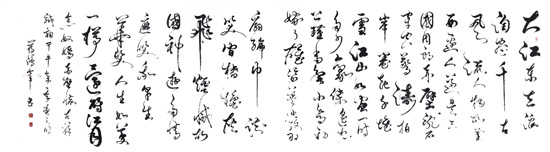 大江东去浪
淘尽千古
风流人物故垒
西边人道是三
国周郎赤壁乱石
穿空惊涛拍
岸卷起千堆
雪江山如画一时
多少豪杰遥想
公瑾当年小乔初
嫁了雄姿英发羽
扇纶巾谈
笑间樯橹灰
飞烟灭故
国神游多情
应笑我早生
华发人生如梦
一樽还酹江月
念奴娇赤壁怀古苏
轼词甲午年